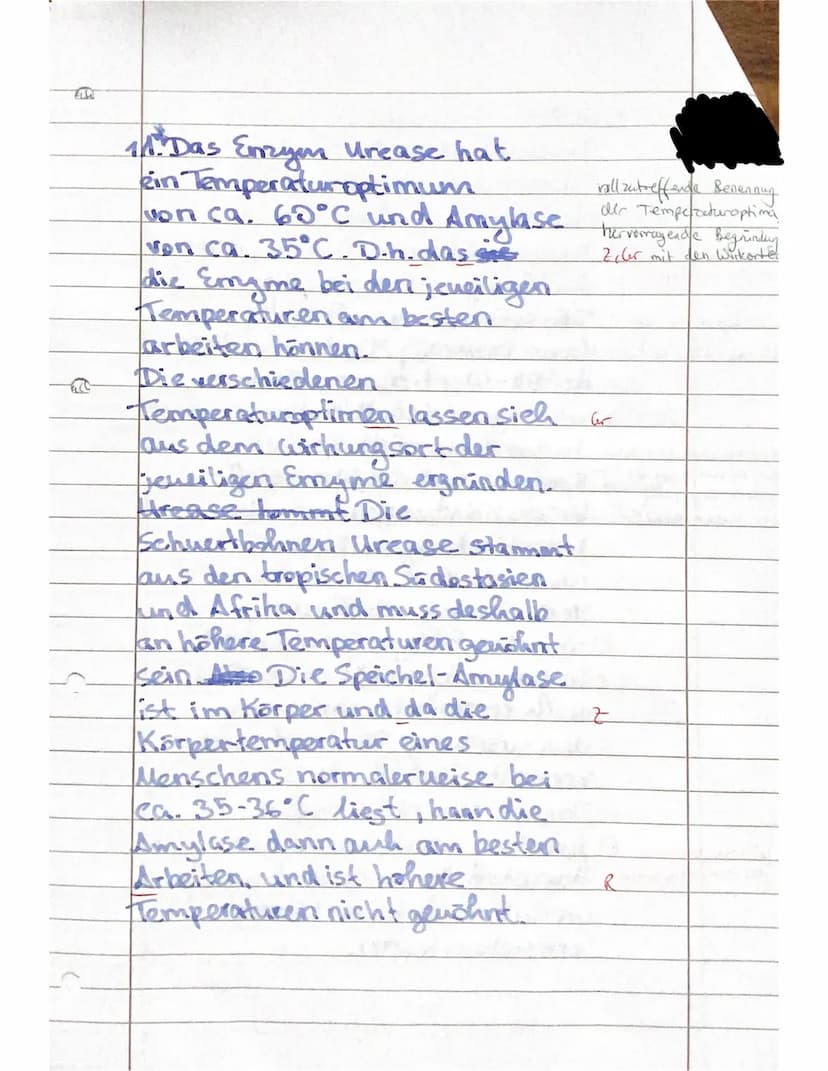 1.1.* Das Enzym Urease hat
ein Temperaturoptimum
von ca. 60°C und Amylase
von ca. 35°C. D.h. das sie
die Enzyme bei den jeweiligen
Temperaturen am besten
arbeiten können.
Die verschiedenen
Temperaturoptimen lassen sich
aus dem Wirkungsort der
jeweiligen Enzyme ergründen.
Urease kommt Die
Schwertbohnen Urease stammt
aus den tropischen Südostasien
und Afrika und muss deshalb
an höhere Temperaturen gewöhnt
sein. Also Die Speichel-Amylase
ist im Körper und da die
Körpertemperatur eines
Menschens normalerweise bei
ca. 35-36°C liegt, kann die
Amylase dann auch am besten
Arbeiten, und ist höhere
Temperaturen nicht gewöhnt.
voll zutreffende Benennung
der Temperaturoptima
hervorragende Begründung
Z, Gr mit den Wirkorte
Gr
Z
R